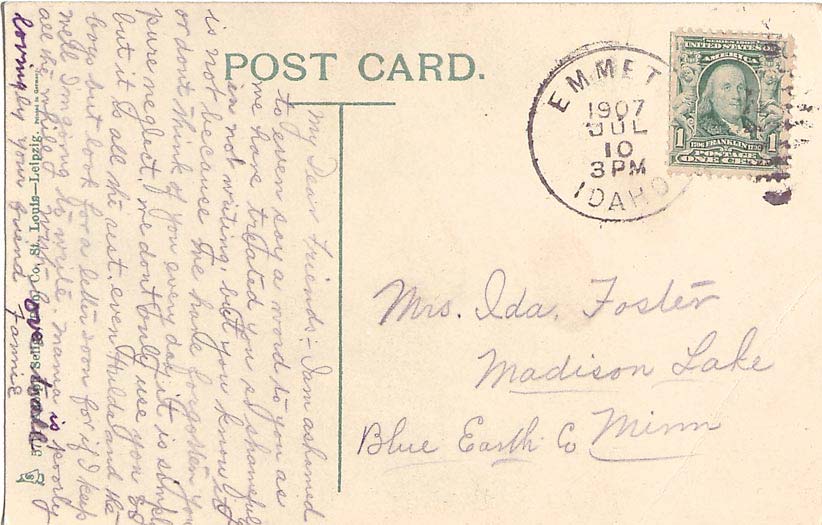 POST CARD.
EMMET
1907
JUL
10
3 PM
IDAHO
UNITED STATES OF
AMERICA
1706 FRANKLIN 1790
POSTAGE
1 1
ONE CENT
Mrs. Ida. Foster
Madison Lake
Blue Earth Co Minn
My Dear Friends:- I am ashamed
to even say a word to you as
we have treated you so shameful
in not writing, but you know it
is not because we have forgotten you
or dont think of you every day, it is simply
pure neglect, we dont only use you so
but it is all the rest, even Hulda and the
boys but look for a letter soon for if I keep
well I'm going to write. Mama is poorly
all the while with
love to all
lovingly your friend Fannie
Co., St. Louis—Leipzig. Printed in Germany